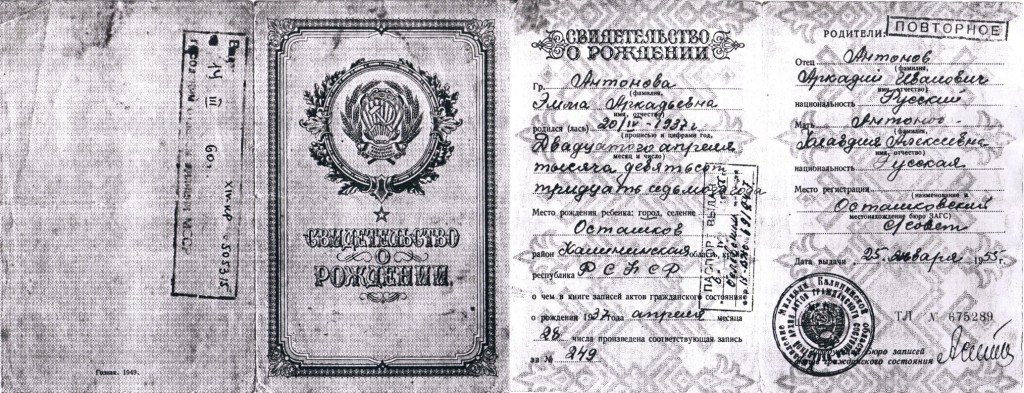 14
III
60
Гознак. 1949.
СВИДЕТЕЛЬСТВО
О
РОЖДЕНИИ.
СВИДЕТЕЛЬСТВО
О РОЖДЕНИИ
Гр. Антонова
(фамилия,
Эмма Аркадьевна
имя, отчество)
родился (лась) 20/IV-1937 г.
(прописью и цифрами год,
Двадцатого апреля
месяц и число)
тысяча девятьсот
тридцать седьмого года
Место рождения ребенка: город, селение
Осташков
район Калининская область, край
республика РСФСР
о чем в книге записей актов гражданского состояния
о рождении 1937 года апреля месяца
28 числа произведена соответствующая запись
за № 249
ПАСПОРТ ВЫДАН
ПОВТОРНОЕ
РОДИТЕЛИ:
Отец Антонов
(фамилия,
Аркадий Иванович
имя, отчество)
национальность Русский
Мать Антонов
(фамилия,
Клавдия Алексеевна
имя, отчество)
национальность Русская
Место регистрации
(наименование и
Осташковский
местонахождение бюро ЗАГС)
Дата выдачи 25 января 1955 г.
ТЛ № 675289
Бюро записей
гражданского состояния